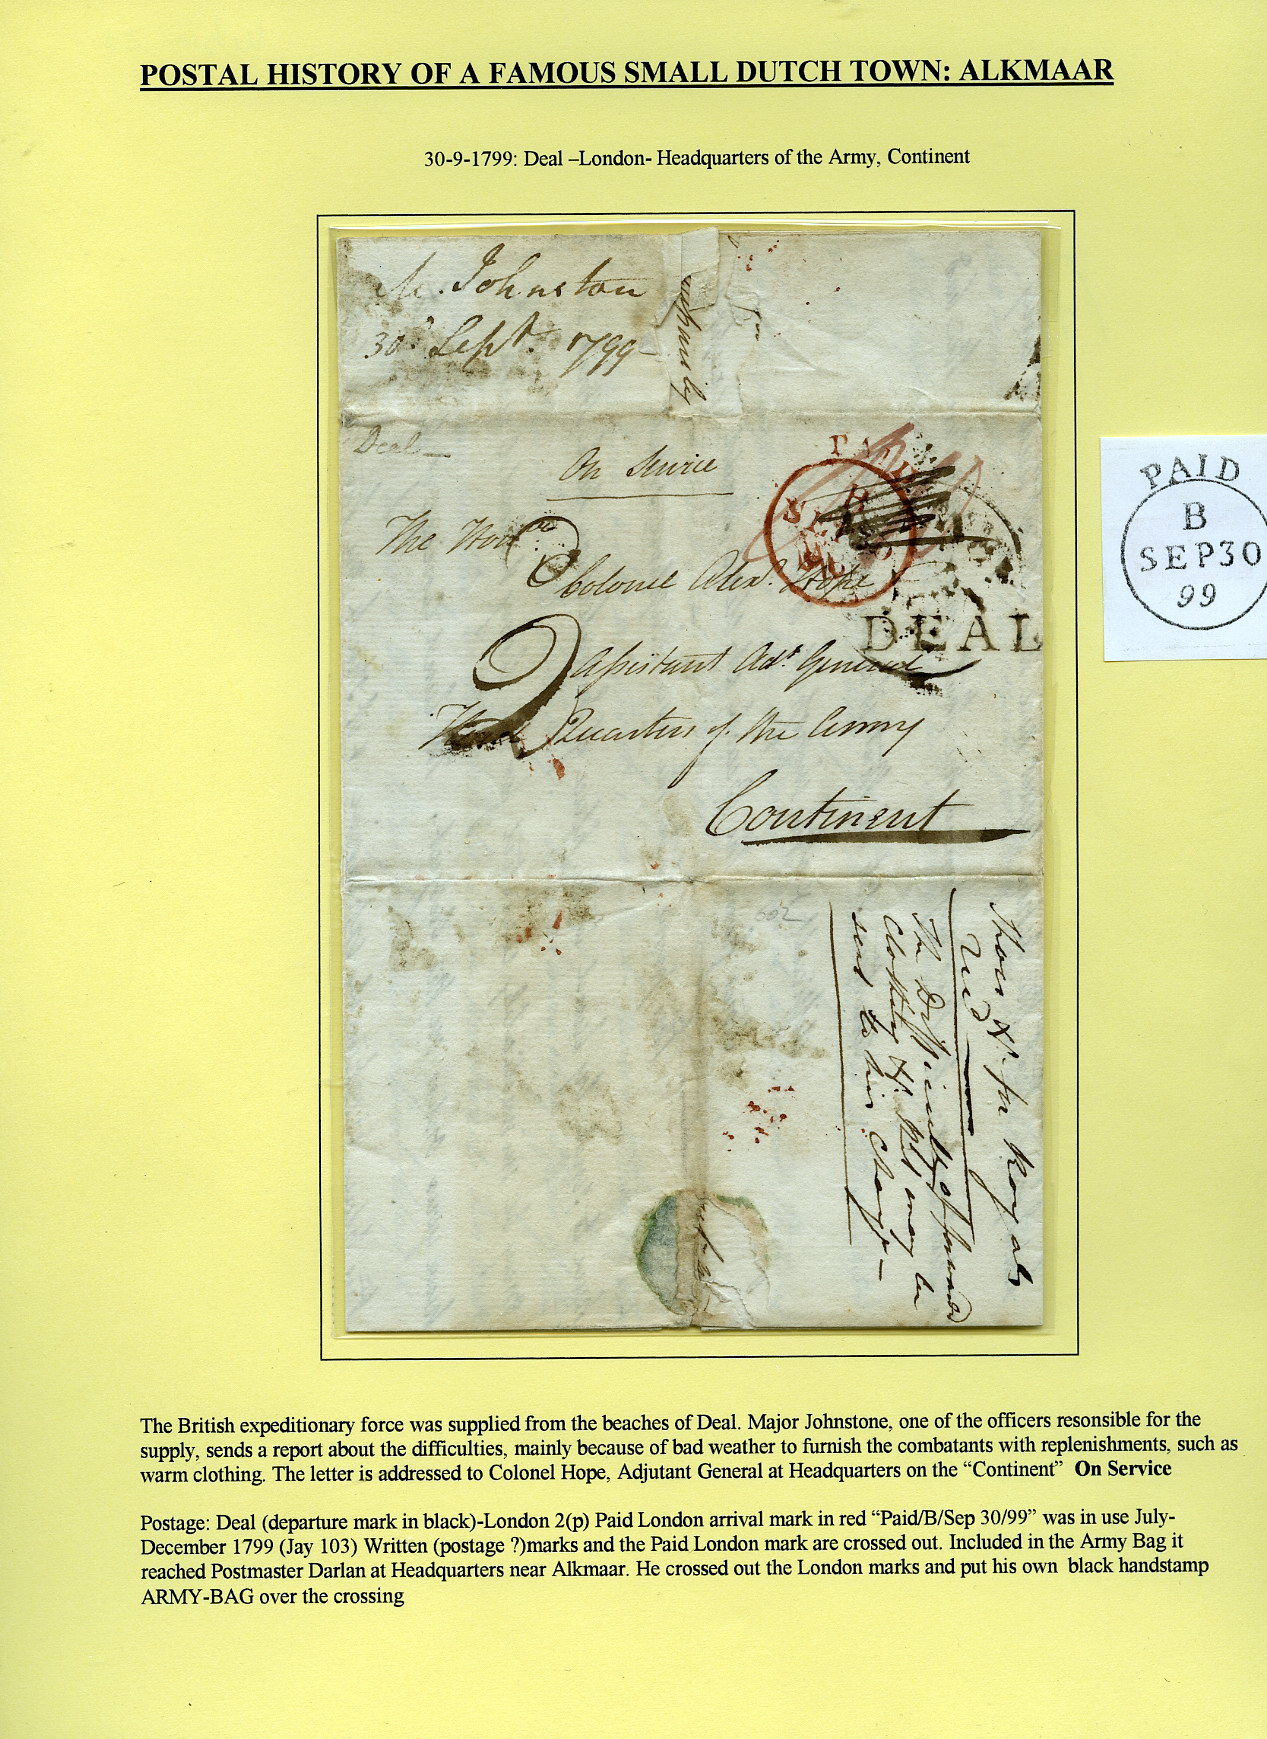 POSTAL HISTORY OF A FAMOUS SMALL DUTCH TOWN: ALKMAAR
30-9-1799: Deal –London- Headquarters of the Army, Continent
M. Johnston
30th Sept. 1799
Deal
On Service
PAID
The Honble
Colonel Alexr. Hope
DEAL
2
Assistant Adt. General
Head Quarters of the Army
Continent
PAID
B
SEP30
99
The Difficulty of forward
Clothing &c. that may be
sent to his Charge
The British expeditionary force was supplied from the beaches of Deal. Major Johnstone, one of the officers resonsible for the
supply, sends a report about the difficulties, mainly because of bad weather to furnish the combatants with replenishments, such as
warm clothing. The letter is addressed to Colonel Hope, Adjutant General at Headquarters on the “Continent” On Service
Postage: Deal (departure mark in black)-London 2(p) Paid London arrival mark in red “Paid/B/Sep 30/99” was in use July-
December 1799 (Jay 103) Written (postage ?)marks and the Paid London mark are crossed out. Included in the Army Bag it
reached Postmaster Darlan at Headquarters near Alkmaar. He crossed out the London marks and put his own black handstamp
ARMY-BAG over the crossing